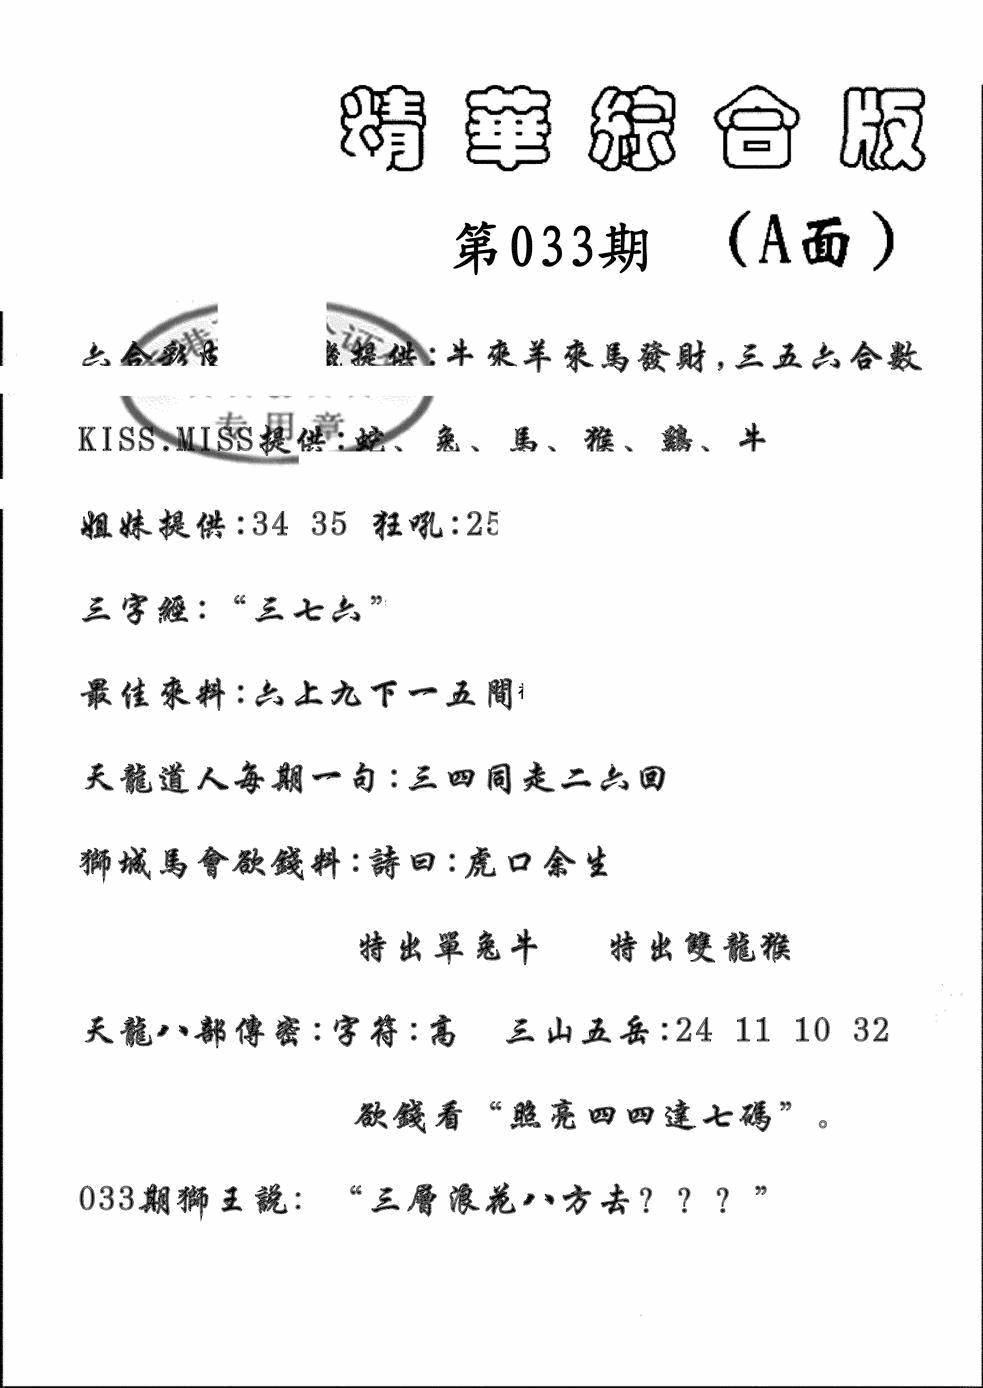 精華綜合版
第033期 (A面)
六合彩 提供:牛來羊來馬發財,三五六合數
专用章
KISS.MISS提供:蛇、兔、馬、猴、鷄、牛
姐妹提供:34 35 狂吼:25
三字經:“三七六”
最佳來料:六上九下一五間
天龍道人每期一句:三四同走二六回
獅城馬會欲錢料:詩曰:虎口余生
特出單兔牛 特出雙龍猴
天龍八部傳密:字符:高 三山五岳:24 11 10 32
欲錢看“照亮四四達七碼”。
033期獅王説: “三層浪花八方去???”